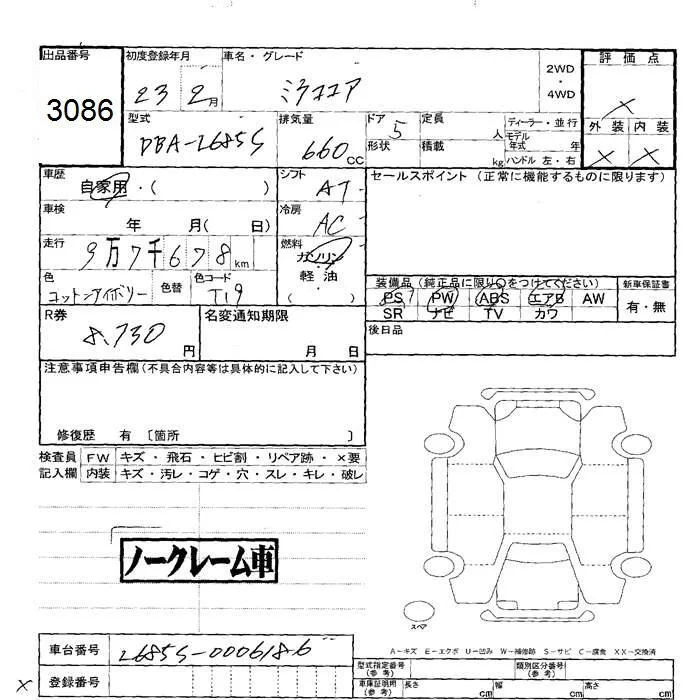 出品番号 初度登録年月 車名・グレード 評価点
3086 23 2月 ミラココア 2WD・4WD ×
型式 排気量 ドア 定員 ディーラー・並行 外装 内装
DBA-L685S 660cc 5 人 モデル年式 年 × ×
形状 積載 kg ハンドル 左・右
車歴 シフト セールスポイント (正常に機能するものに限ります)
自家用・( ) AT
車検 冷房
年 月( 日) AC
走行 燃料
9万7千678km ガソリン・軽・油
( )
色 色替 色コード 装備品 (純正品に限り○をつけてください) 新車保証書
コットンアイボリー T19 PS PW ABS エアB AW 有・無
SR ナビ TV カワ
R券 名変通知期限 後日品
8,730円 月 日
注意事項申告欄(不具合内容等は具体的に記入して下さい)
修復歴 有 〔箇所 〕
検査員 FW キズ・飛石・ヒビ割・リペア跡・×要
記入欄 内装 キズ・汚レ・コゲ・穴・スレ・キレ・破レ
ノークレーム車
スペア
A-キズ E-エクボ U-凹み W-補修跡 S-サビ C-腐食 XX-交換済
車台番号 L685S-0006186 型式指定番号(参考) 類別区分番号(参考)
× 登録番号 車庫証明用(参考) 長さ cm 幅 cm 高さ cm